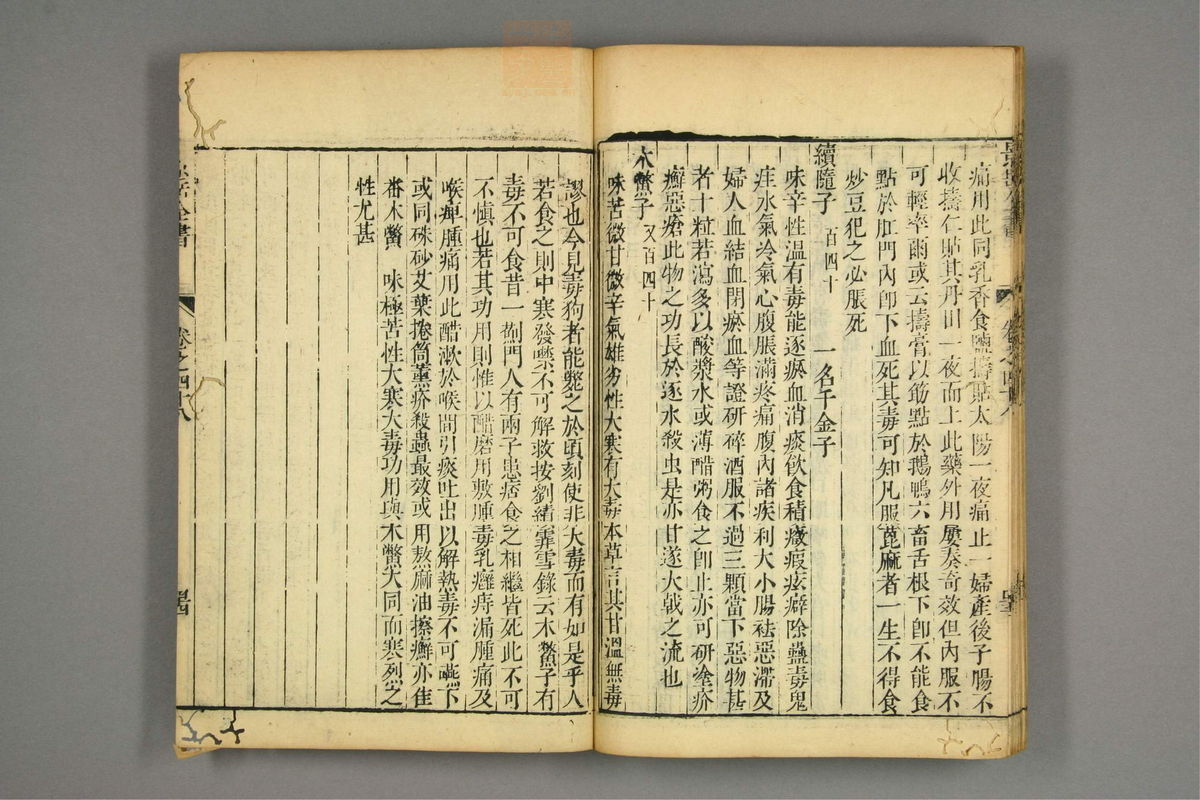 痛用此同乳香食鹽擣貼太陽一夜痛止一婦產後子腸不
收擣仁貼其丹田一夜而上此藥外用屢奏奇效但內服不
可輕率爾或云擣膏以筋點於鵝鴨六畜舌根下卽不能食
點於肛門內卽下血死其毒可知凡服蓖麻者一生不得食
炒豆犯之必脹死
續隨子 百四十 一名千金子
味辛性溫有毒能逐瘀血消痰飲食積癥瘕痃癖除蠱毒鬼
疰水氣冷氣心腹脹滿疼痛腹內諸疾利大小腸祛惡滯及
婦人血結血閉瘀血等證研碎酒服不過三顆當下惡物甚
者十粒若瀉多以酸漿水或薄醋粥食之卽止亦可研塗疥
癬惡瘡此物之功長於逐水殺虫是亦甘遂大戟之流也
木鱉子 又百四十
味苦微甘微辛氣雄劣性大寒有大毒本草言其甘溫無毒
謬也今見毒狗者能斃之於頃刻使非大毒而有如是乎人
若食之則中寒發噤不可解救按劉績霏雪錄云木鱉子有
毒不可食昔一薊門人有兩子患痞食之相繼皆死此不可
不慎也若其功用則惟以醋磨用敷腫毒乳癰痔漏腫痛及
喉痺腫痛用此醋漱於喉間引痰吐出以解熱毒不可嚥下
或同硃砂艾葉捲筒薰疥殺蟲最效或用熬麻油擦癬亦佳
番木鱉 味極苦性大寒大毒功用與木鱉大同而寒烈之
性尤甚
岳全書 卷之四十八